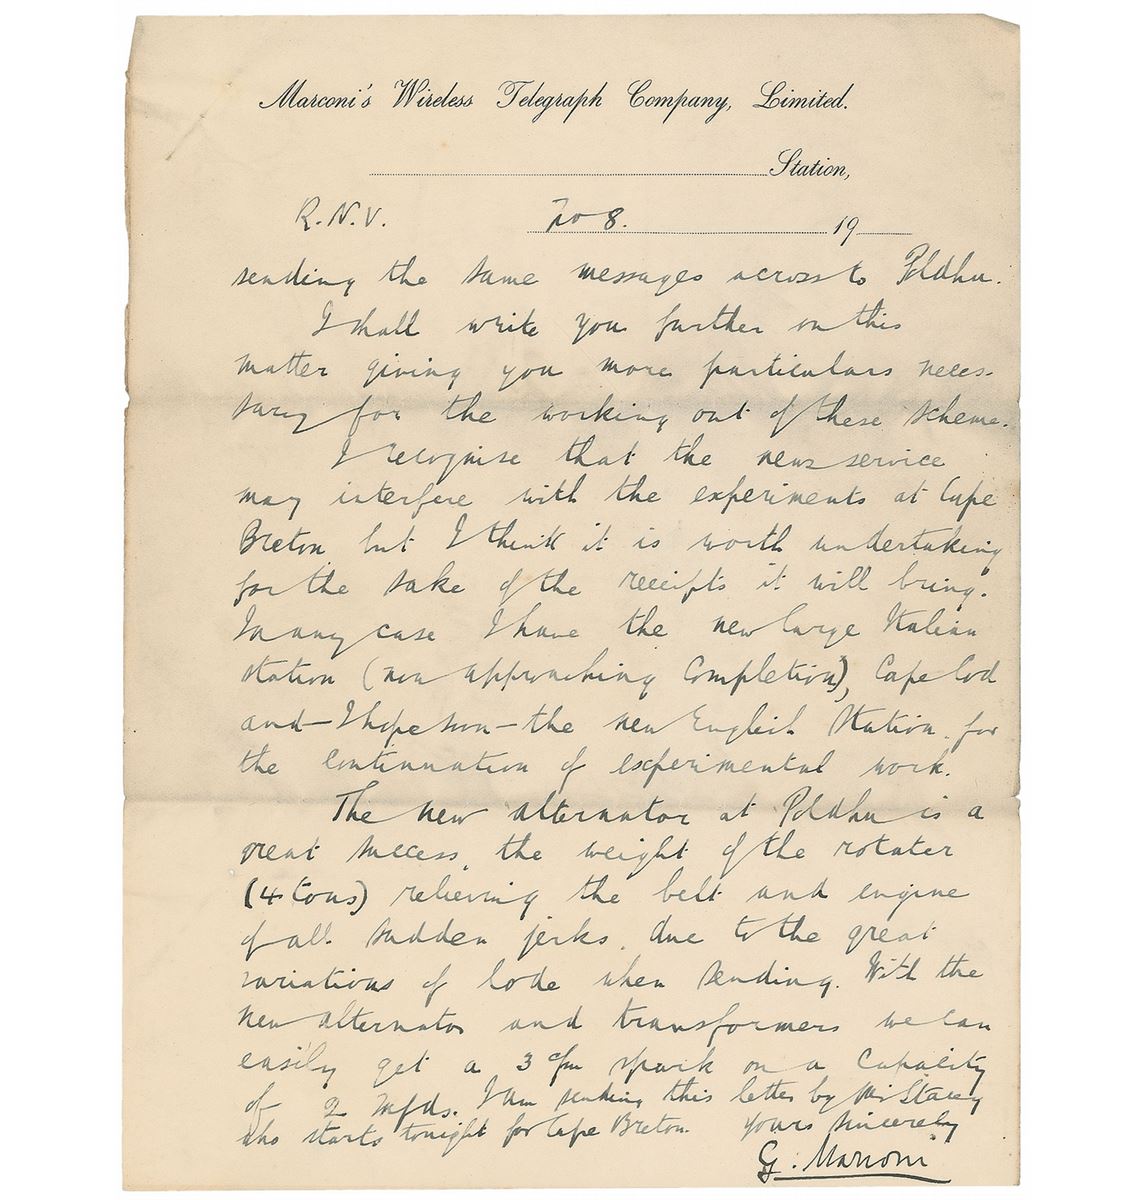 Marconi's Wireless Telegraph Company, Limited.
Station,
R.N.V. No 8. 19
sending the same messages across to Poldhu.
I shall write you further on this
matter giving you more particulars neces-
sary for the working out of these scheme.
I recognise that the news service
may interfere with the experiments at Cape
Breton but I think it is worth undertaking
for the sake of the receipts it will bring.
In any case I have the new large Italian
station (now approaching completion), Cape Cod
and - I hope soon - the new English Station for
the continuation of experimental work.
The new alternator at Poldhu is a
great success, the weight of the rotater
(4 tons) relieving the belt and engine
of all sudden jerks, due to the great
variations of lode when sending. With the
new alternator and transformers we can
easily get a 3 c/m spark on a capacity
of 2 mfds. I am sending this letter by Mr Stacey
who starts tonight for Cape Breton. Yours sincerely
G. Marconi